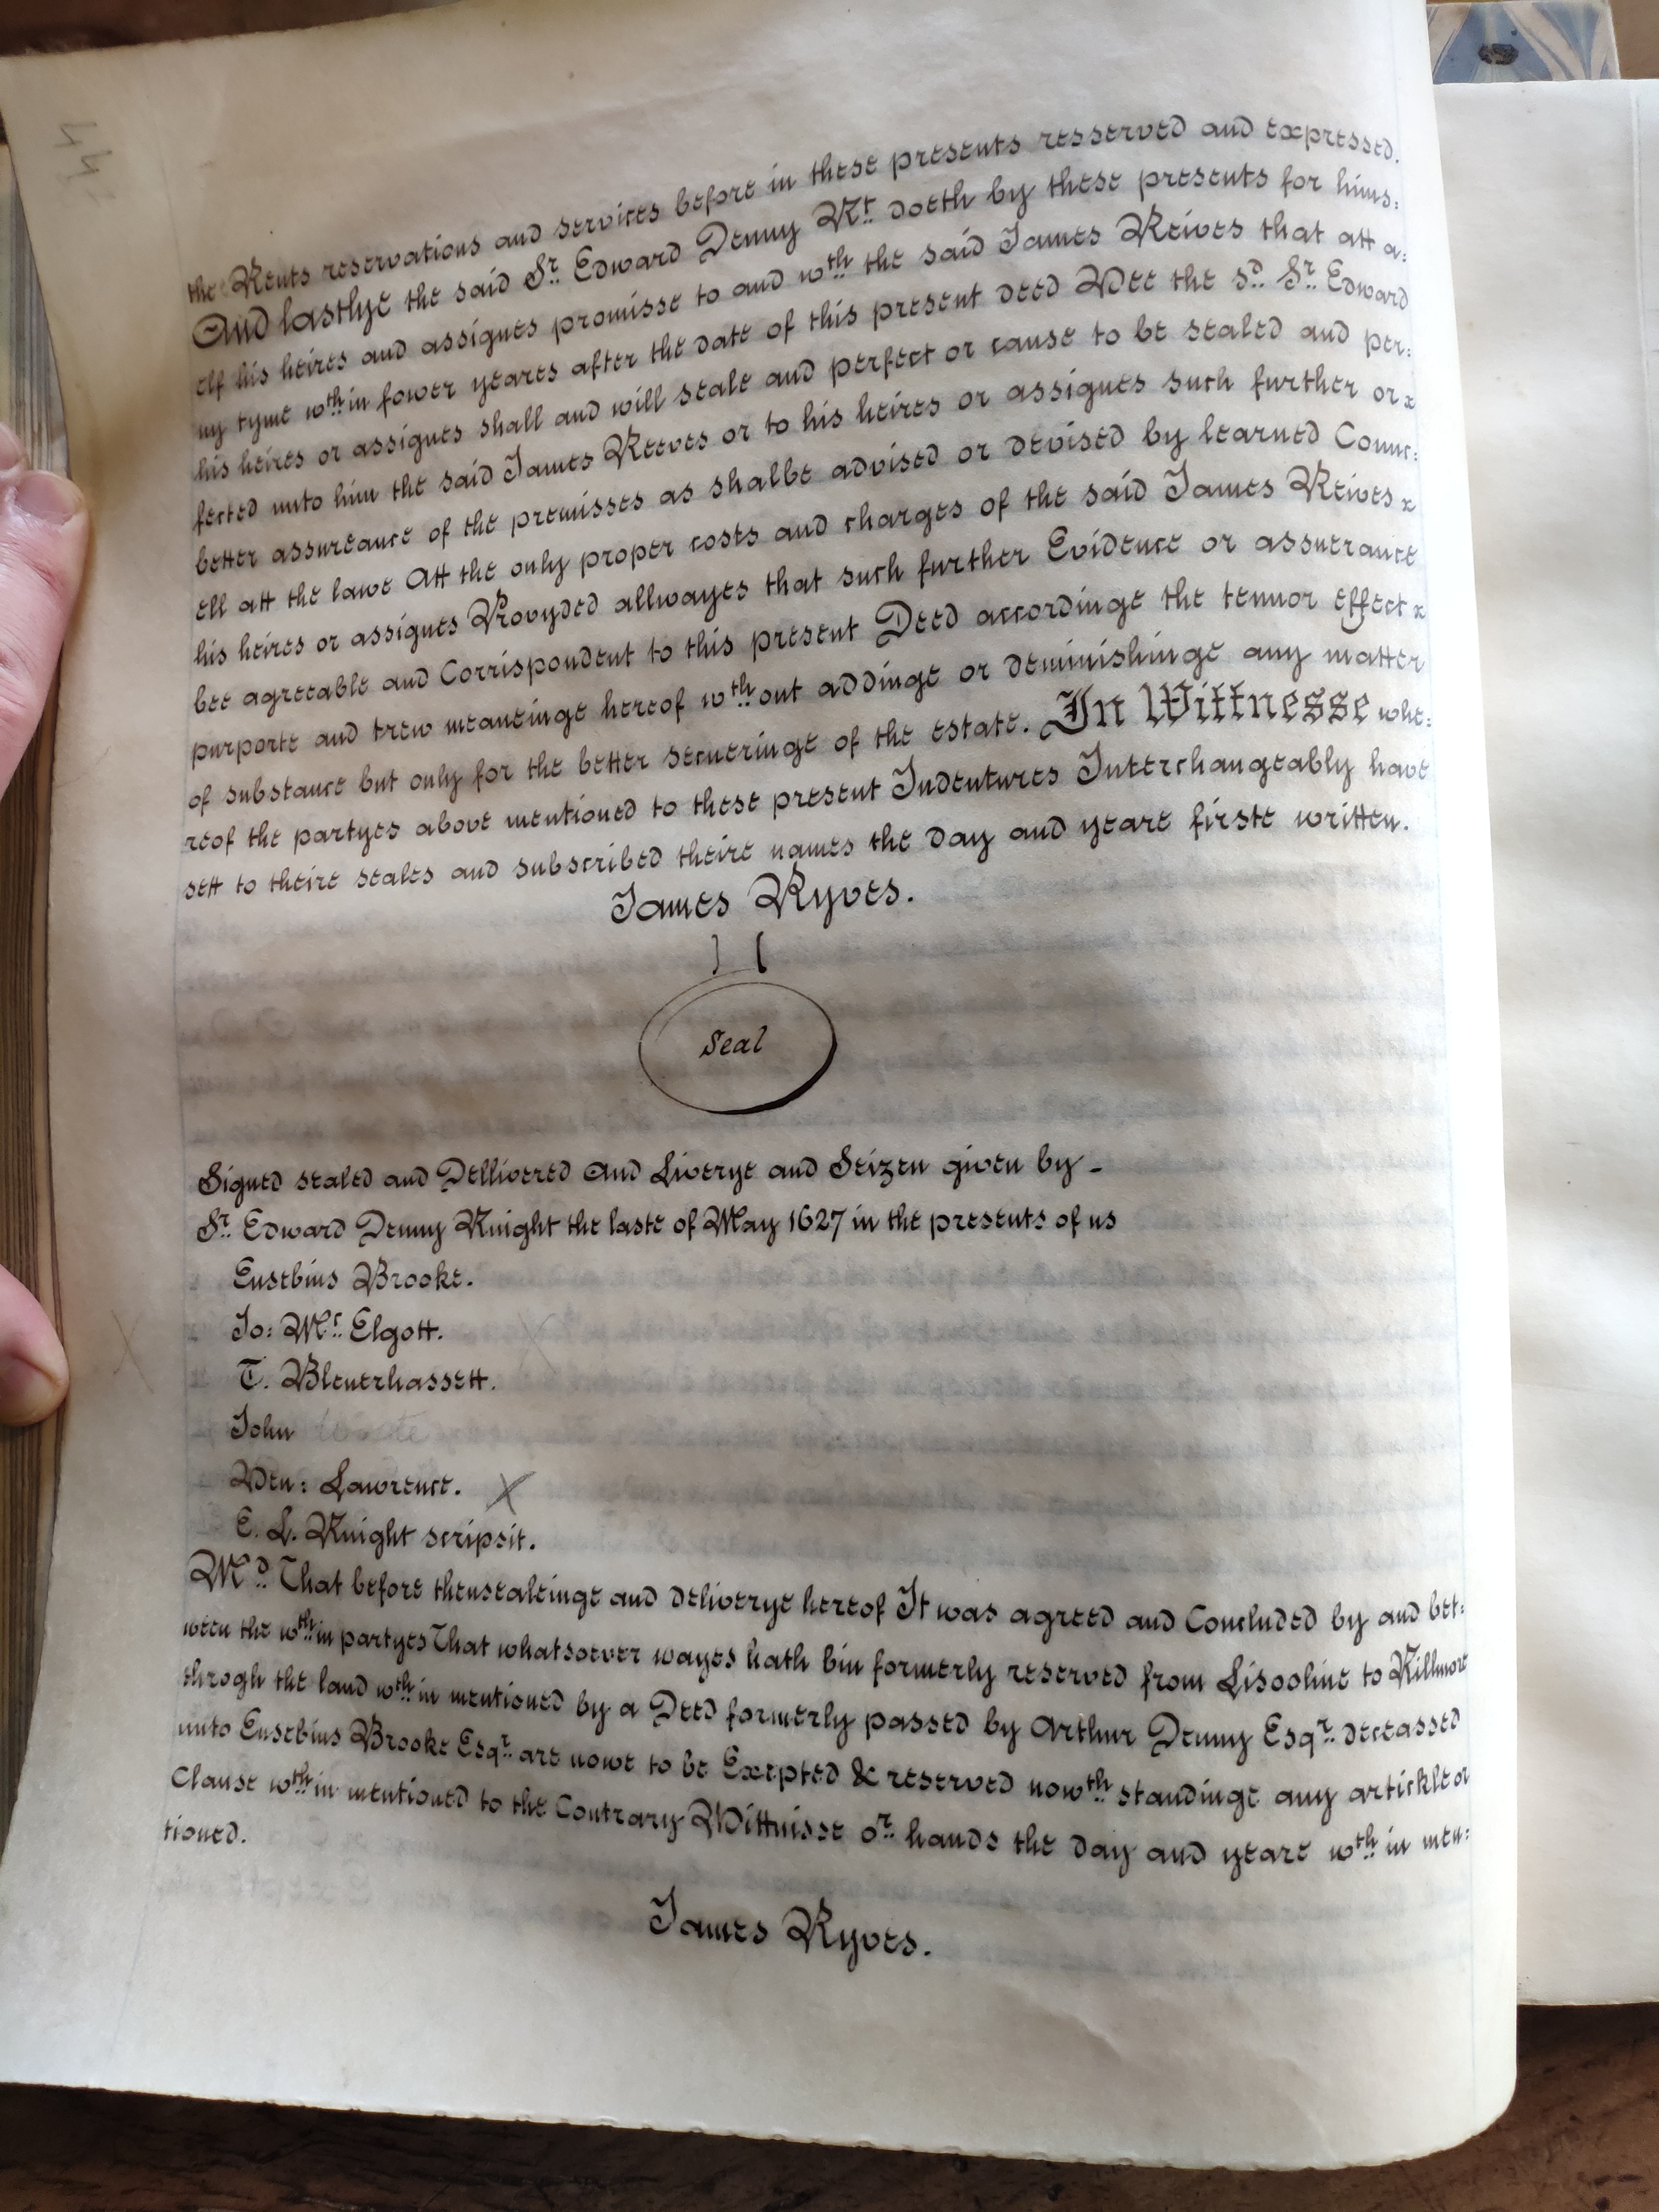 the Rents reservations and services before in these presents resserved and expressed.
And lastlye the said Sr. Edward Denny Kt. doeth by these presents for hims:
elf his heires and assignes promisse to and wth. the said James Reives that att a:
ny tyme wth.in fower yeares after the date of this present deed Wee the sd. Sr. Edward
his heires or assignes shall and will seale and perfect or cause to be sealed and per:
fected unto him the said James Reeves or to his heires or assignes such further or x
better assureance of the premisses as shalbe advised or devised by learned Counc:
ell att the lawe Att the only proper costs and charges of the said James Reives x
his heires or assignes Provyded allwayes that such further Evidence or assuerance
bee agreeable and Corrispondent to this present Deed accordinge the tennor effect x
purporte and trew meaneinge hereof wth.out addinge or deminishinge any matter
of substance but only for the better secueringe of the estate. In Wittnesse whe:
reof the partyes above mentioned to these present Indentures Interchangeably have
sett to theire seales and subscribed theire names the day and yeare firste written.
James Ryves.
Seal
Signed sealed and Dellivered and Liverye and Seizen given by -
Sr. Edward Denny Knight the laste of May 1627 in the presents of us
Eusebius Brooke.
Jo: Mc. Elgott.
T. Blenerhassett.
John
Wen: Lawrence. X
E. L. Knight scripsit.
Md. That before thensealeinge and deliverye hereof It was agreed and Concluded by and bet:
ween the wth.in partyes That whatsoever wayes hath bin formerly reserved from Lisooline to Killmore
throgh the land wth.in mentioned by a Deed formerly passed by Arthur Denny Esqr. deceassed
unto Eusebius Brooke Esqr. are nowe to be Excepted & reserved nowth. standinge any artickle or
Clause wth.in mentioned to the Contrary Wittnisse or. hands the day and yeare wth.in men:
tioned.
James Ryves.